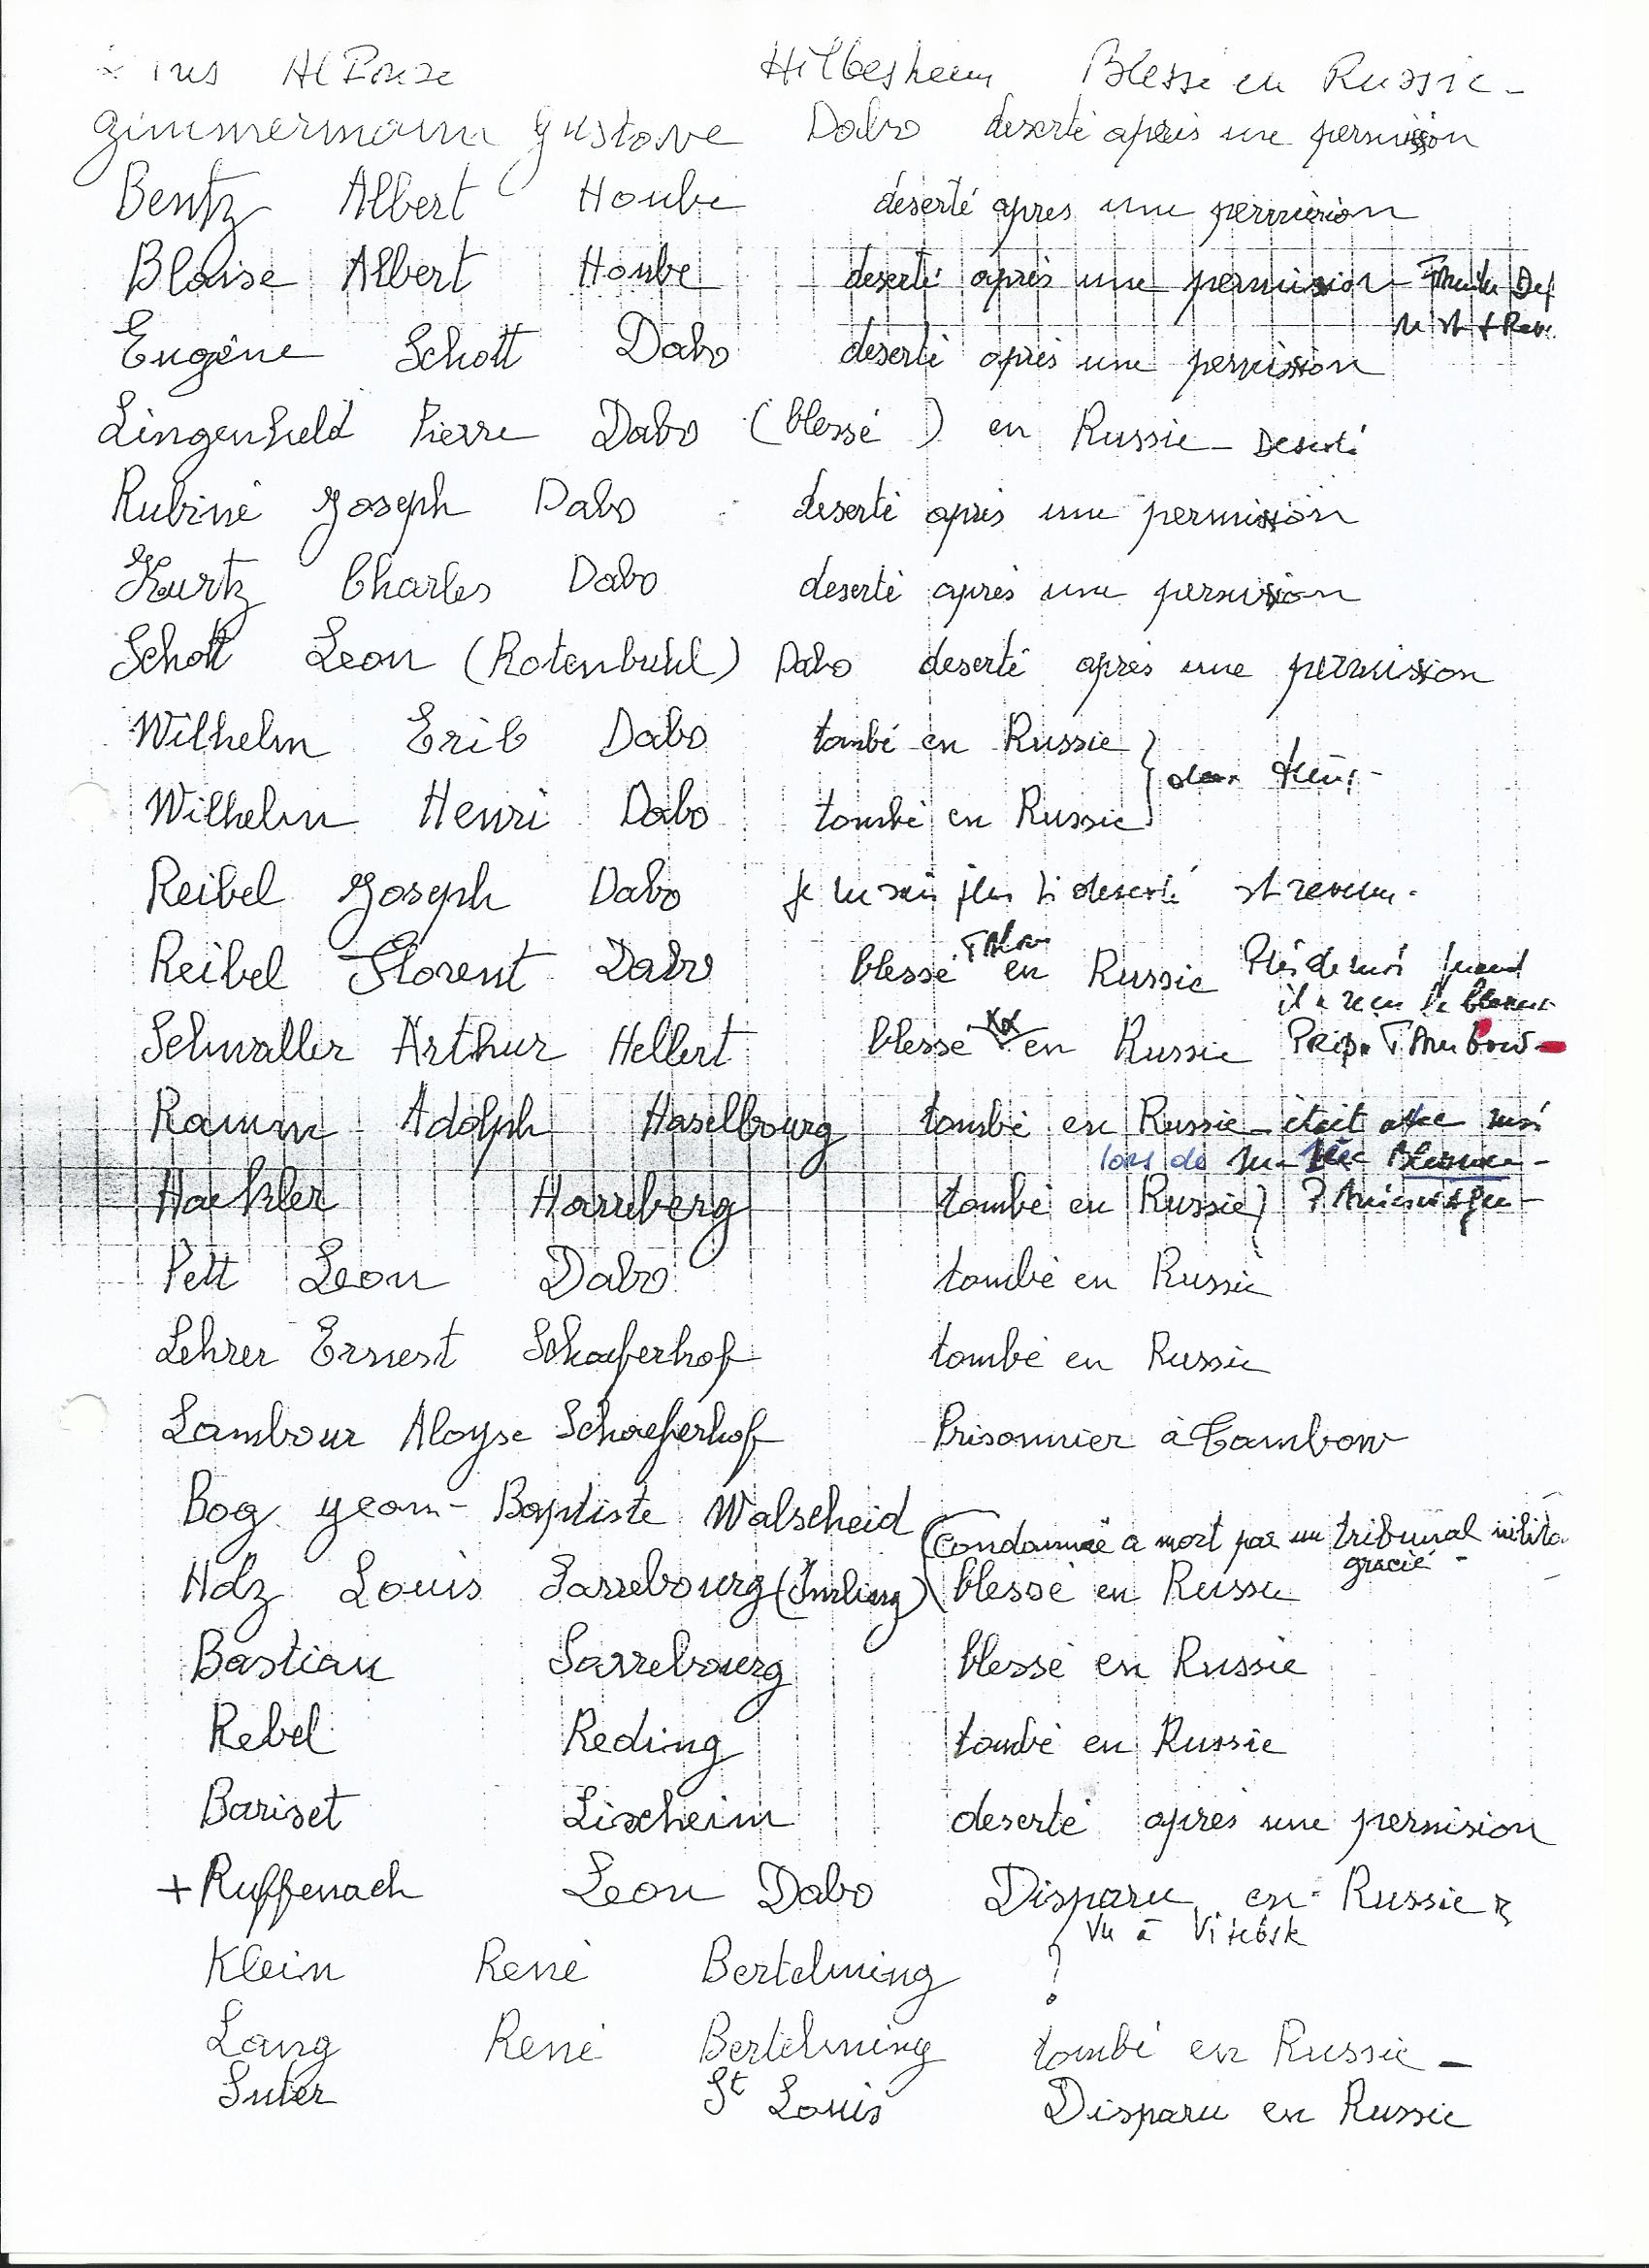 Hilbesheim Blessé en Russie -
Zimmermann Gustave Dabo deserté après une permission
Bentz Albert Hoube deserté apres une permision
Blaise Albert Hoube deserté après une permission -
Eugène Schott Dabo deserté après une permission
Lingenheld Pierre Dabo (blessé) en Russie - Deserté
Rubiné Joseph Dabo deserté après une permission
Kurtz Charles Dabo deserté après une permission
Schott Leon (Rotenbuhl) Dabo deserté après une permission
Wilhelm Erib Dabo tombé en Russie
Wilhelm Henri Dabo tombé en Russie
Reibel Joseph Dabo je ne sais plus si deserté st revenu.
Reibel Florent Dabo blessé en Russie Près de moi quand
il a reçu la blessure
Schwaller Arthur Hellert blessé en Russie Pris. TAmbow -
Ramm Adolph Haselbourg tombé en Russie - était avec moi
lors de blessure -
Harreberg tombé en Russie)
Pett Leon Dabo tombé en Russie
Lehrer Ernest Schaeferhof tombé en Russie
Lambour Aloyse Schaeferhof Prisonnier à Tambow
Bog Jean-Baptiste Walscheid (Condamné a mort par un tribunal
gracié -
Louis Sarrebourg (Imling) blessé en Russie
Bastian Sarrebourg blessé en Russie
Rebel Reding tombé en Russie
Bariset Lixheim deserté après une permision
+ Ruffenach Leon Dabo Disparu en Russie
Vu à Vitebsk
Klein René Bertelming ?
Lang René Bertelming tombé en Russie -
Suter St Louis Disparu en Russie